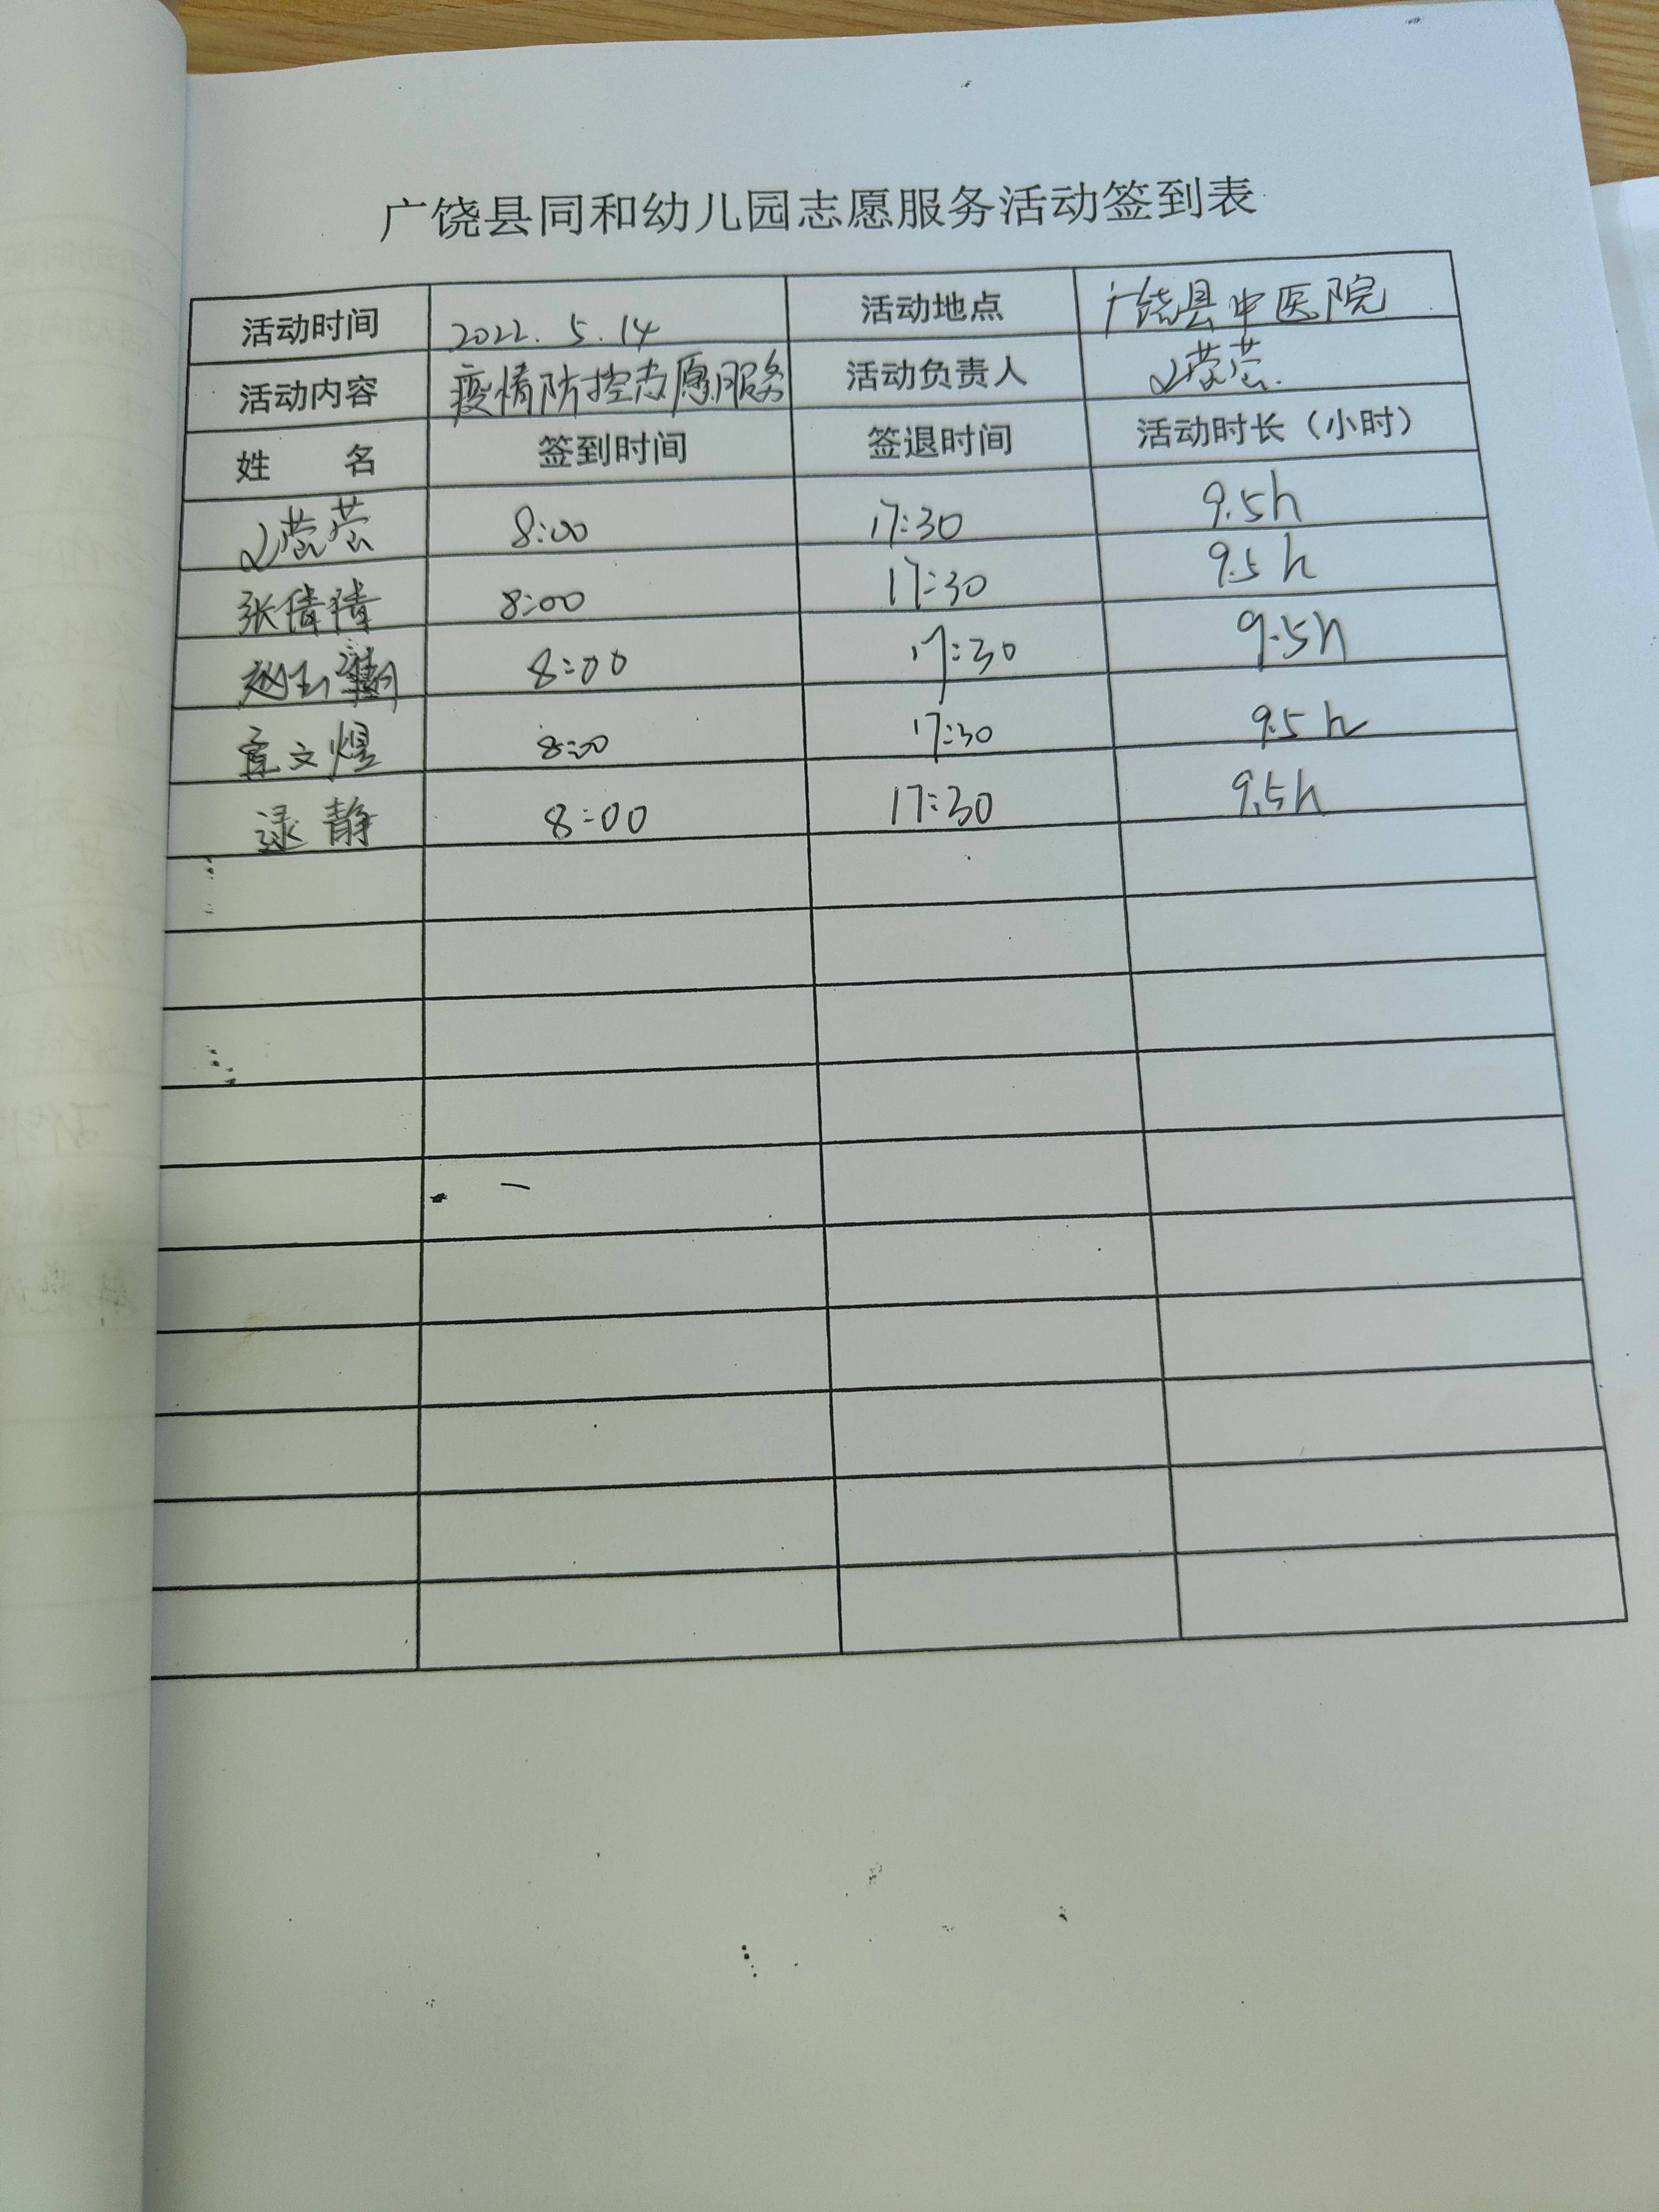 广饶县同和幼儿园志愿服务活动签到表
活动时间 2022.5.14 活动地点 广饶县中医院
活动内容 疫情防控志愿服务 活动负责人
姓 名 签到时间 签退时间 活动时长（小时）
8:00 17:30 9.5h
张倩倩 8:00 17:30 9.5h
赵玉 8:00 17:30 9.5h
文煜 8:00 17:30 9.5h
静 8:00 17:30 9.5h